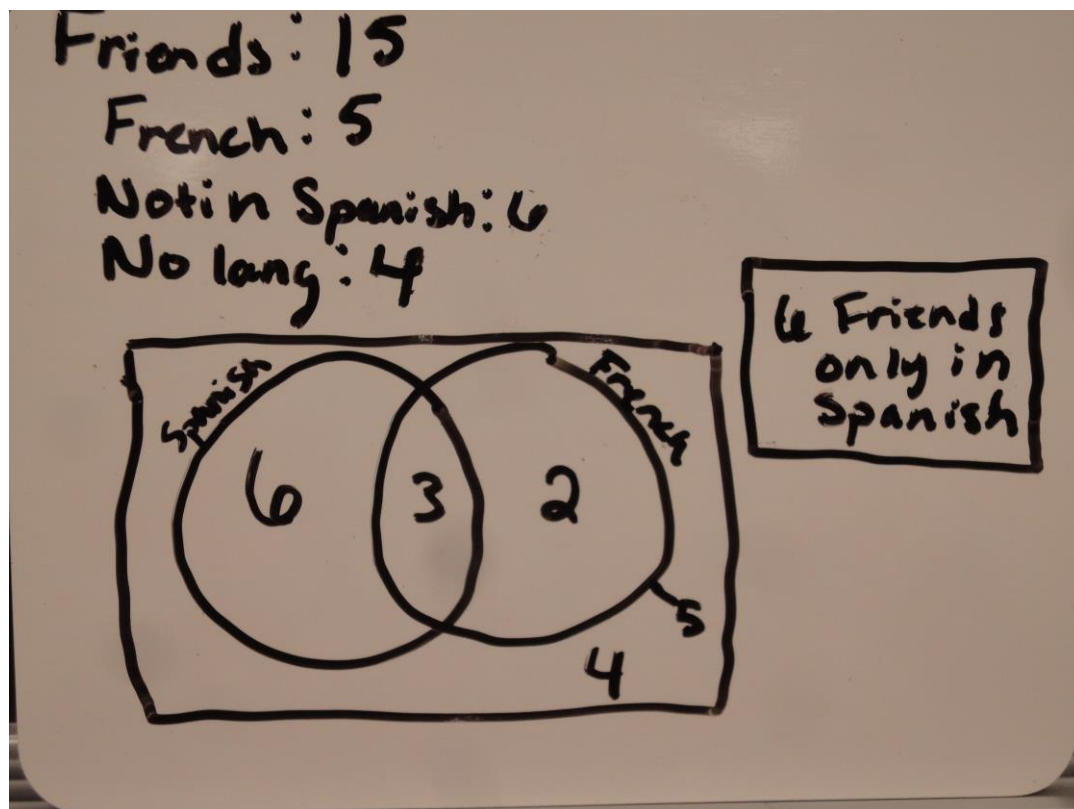 Friends: 15
French: 5
Not in Spanish: 6
No lang: 4
6 Friends
only in
Spanish
Spanish
French
6
3
2
5
4